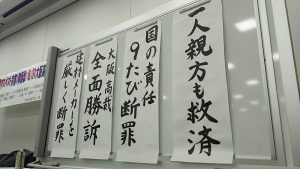 一人親方も救済
国の責任
9たび断罪
大阪高裁
全面勝訴
建材メーカーを
厳しく断罪